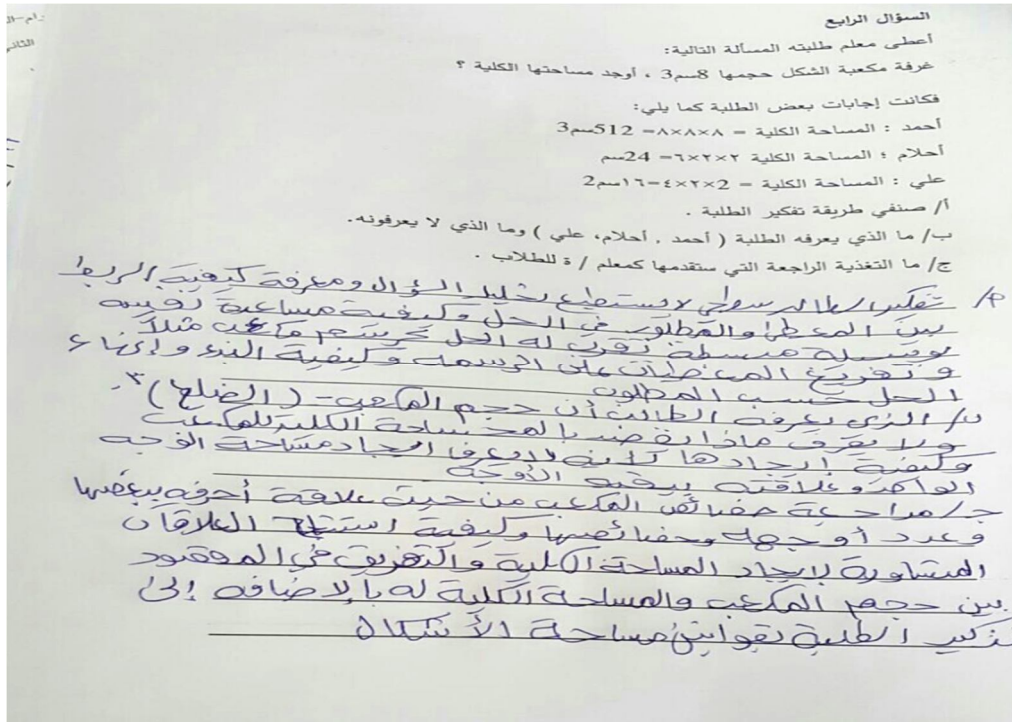 رام-ال
الثاني
السؤال الرابع
أعطى معلم طلبته المسألة التالية:
غرفة مكعبة الشكل حجمها 8سم3 ، أوجد مساحتها الكلية ؟
فكانت إجابات بعض الطلبة كما يلي:
أحمد : المساحة الكلية = ٨×٨×٨= 512سم3
أحلام : المساحة الكلية ٢×٢×٦= 24سم
علي : المساحة الكلية = 2×٢×٤=١٦سم2
أ/ صنفي طريقة تفكير الطلبة .
ب/ ما الذي يعرفه الطلبة ( أحمد ، أحلام، علي ) وما الذي لا يعرفونه.
ج/ ما التغذية الراجعة التي ستقدمها كمعلم / ة للطلاب .
تفكير الطالب سطحي لا يستطيع تحليل السؤال ومعرفة كيفية الربط
بين المعطى والمطلوب في الحل وكيفية مساعدة نفسه
بوسيلة مبسطة تقرب له الحل كرسم مكعب مثلاً
وتفريغ المعطيات على الرسمه وكيفية البدء وإنهاء
الحل حسب المطلوب
ب/ الذي يعرفه الطالب أن حجم المكعب = (الضلع)٣.
ولا يعرف ماذا يقصد بالمساحة الكلية للمكعب
وكيفية إيجادها لايعرف ايجاد مساحة الوجه
الواحد وعلاقته ببقية الأوجه
ج/ مراجعة خصائص المكعب من حيث علاقة أحرفه ببعضها
وعدد أوجهه وخصائصها وكيفية استنتاج العلاقات
المتساوية لإيجاد المساحة الكلية والتفريق في المقصود
بين حجم المكعب والمساحة الكلية له بالإضافه إلى
تذكير الطلبة بقوانين مساحة الأشكال